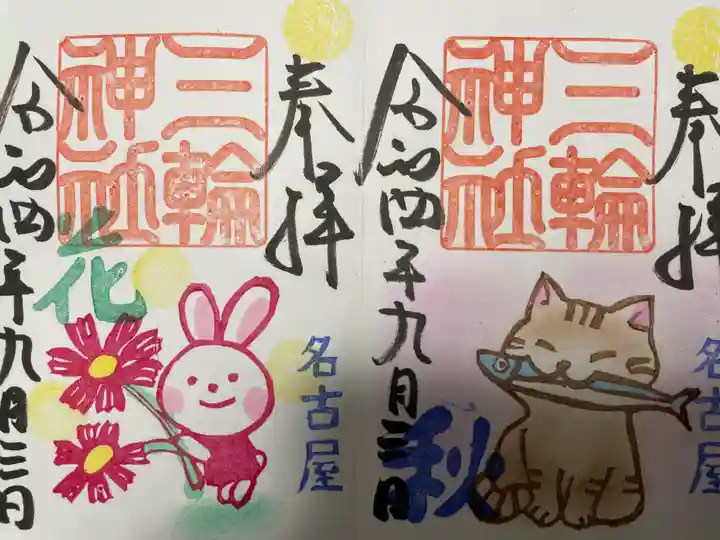 奉拝
三輪
神社
花
令和四年九月三日
名古屋
奉拝
三輪
神社
令和四年九月三日
秋
名古屋